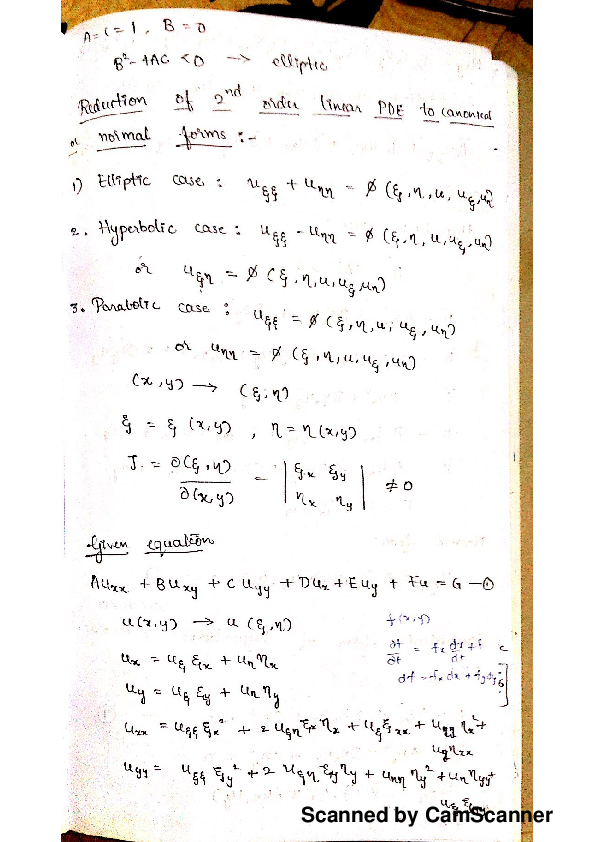 A = C = 1, B = 0
B² - 4AC < 0 → elliptic
Reduction of 2nd order linear PDE to canonical
or normal forms :-
1) Elliptic case : u_ξξ + u_ηη = ϕ (ξ, η, u, u_ξ, u_η)
2. Hyperbolic case : u_ξξ - u_ηη = ϕ (ξ, η, u, u_ξ, u_η)
or u_ξη = ϕ (ξ, η, u, u_ξ, u_η)
3. Parabolic case : u_ξξ = ϕ (ξ, η, u, u_ξ, u_η)
or u_ηη = ϕ (ξ, η, u, u_ξ, u_η)
(x, y) → (ξ, η)
ξ = ξ (x, y) , η = η (x, y)
J = ∂(ξ, η) / ∂(x, y) = | ξ_x ξ_y ; η_x η_y | ≠ 0
Given equation
A u_xx + B u_xy + C u_yy + D u_x + E u_y + F u = G — ①
u(x, y) → u(ξ, η)
f(x, y)
u_x = u_ξ ξ_x + u_η η_x
∂f/∂t = f_x dx/dt + f
u_y = u_ξ ξ_y + u_η η_y
df = f_x dx + f_y dy
u_xx = u_ξξ ξ_x² + 2 u_ξη ξ_x η_x + u_ξ ξ_xx + u_ηη η_x² +
u_η η_xx
u_yy = u_ξξ ξ_y² + 2 u_ξη ξ_y η_y + u_ηη η_y² + u_η η_yy +
u_ξ ξ_yy
Scanned by CamScanner